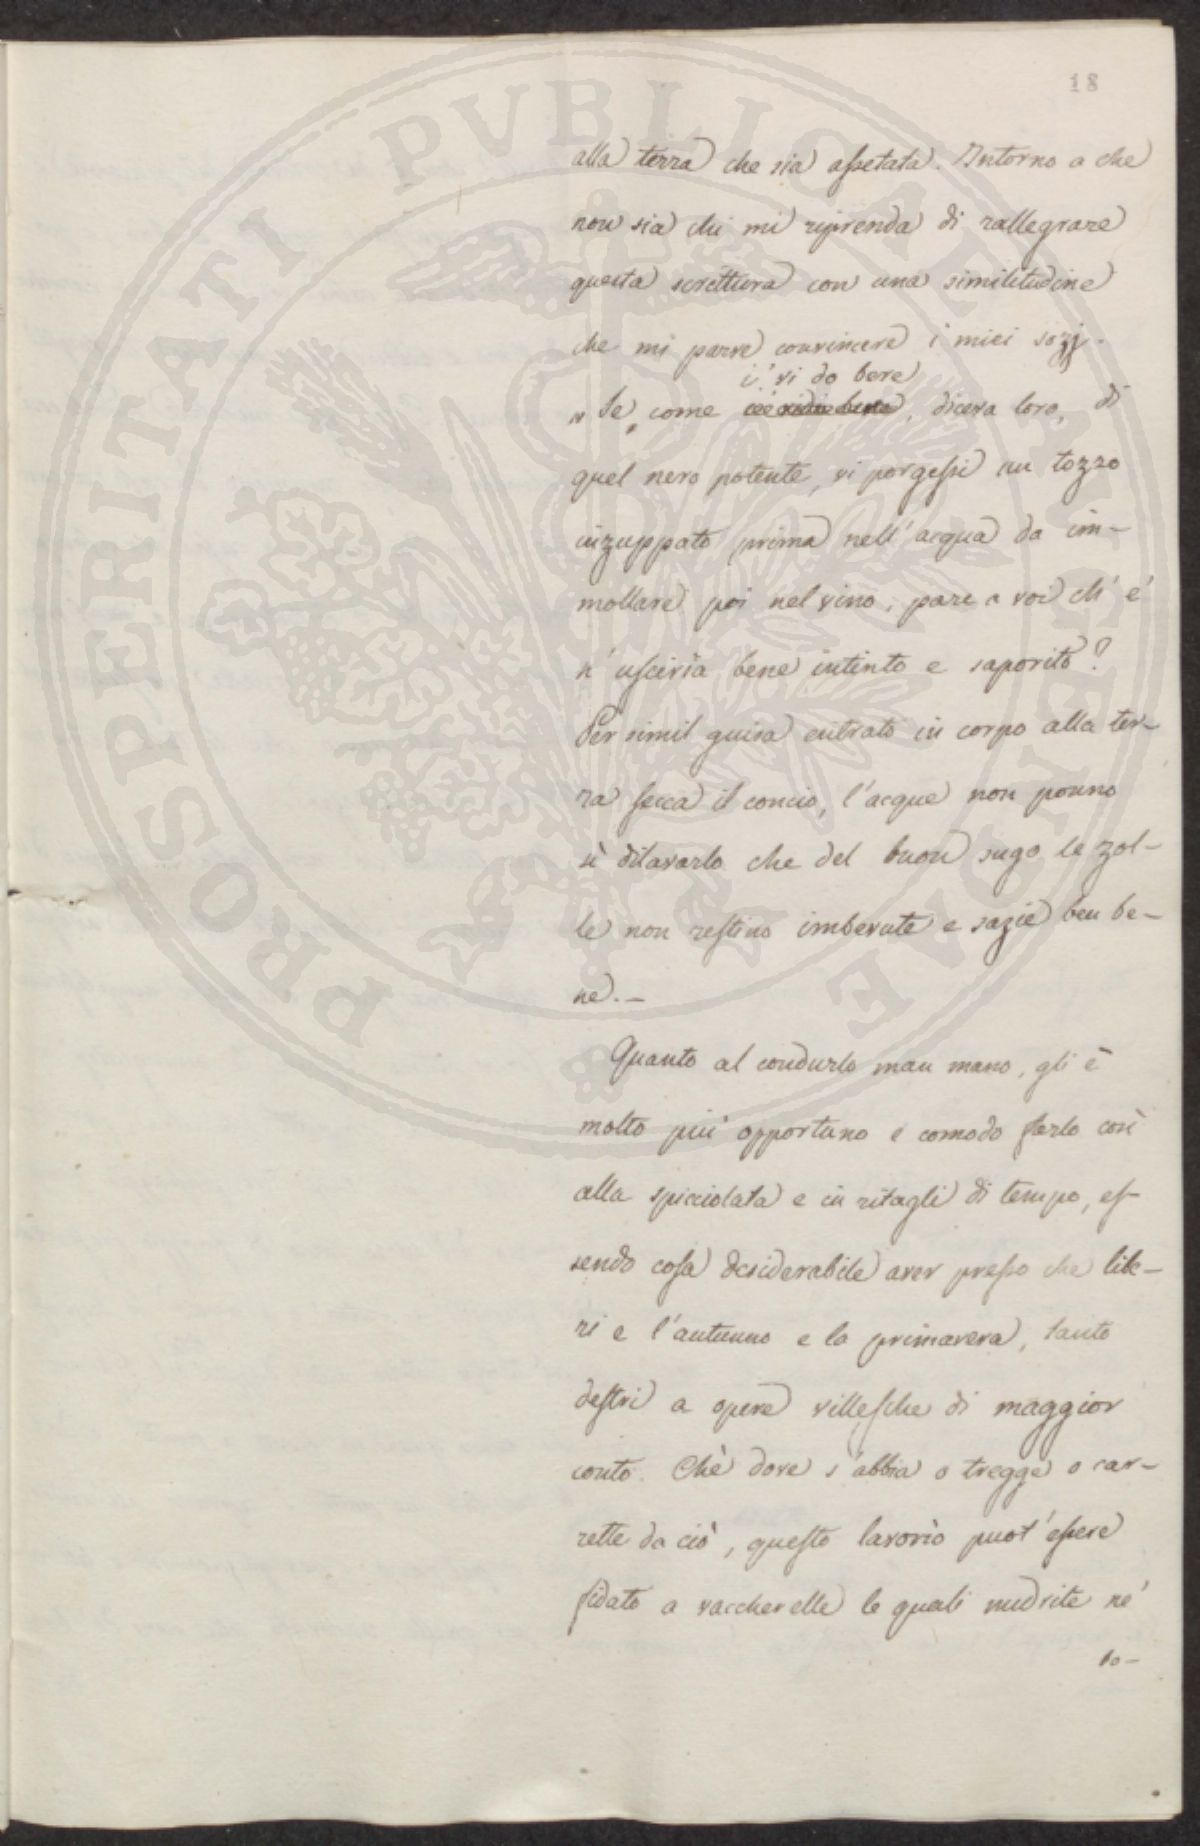 18
alla terra che sia assetata. Intorno a che
non sia chi mi riprenda di rallegrare
questa scrittura con una similitudine
che mi parve convincere i miei sozj.
i' vi do bere
" Se, come, diceva loro, di
quel nero potente, vi porgessi un tozzo
inzuppato prima nell'acqua da im-
mollare poi nel vino, pare a voi ch'e'
n'uscirìa bene intinto e saporito?
Per simil guisa entrato in corpo alla ter-
ra secca il concio, l'acque non ponno
sì dilavarlo che del buon sugo le zol-
le non restino imbevute e sazie ben be-
ne. —
Quanto al condurlo man mano, gli è
molto più opportuno e comodo farlo così
alla spicciolata e in ritagli di tempo, es-
sendo cosa desiderabile aver presso che libe-
ri e l'autunno e la primavera, tanto
destri a opere villesche di maggior
conto. Chè dove s'abbia o tregge o car-
rette da ciò, questo lavorìo puot'essere
fidato a vaccherelle le quali nudrite ne'
bo-
PROSPERITATI PVBLICAE AVGENDAE